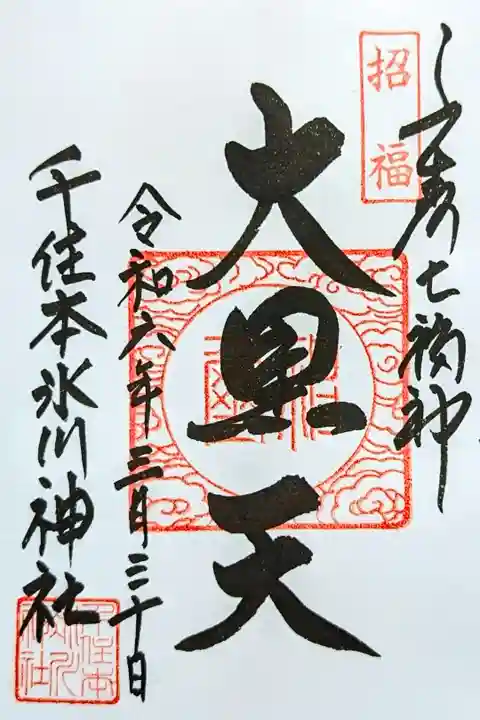 招福
千寿七福神
大黒天
令和六年三月三十日
千住本氷川神社
千住本氷川神社